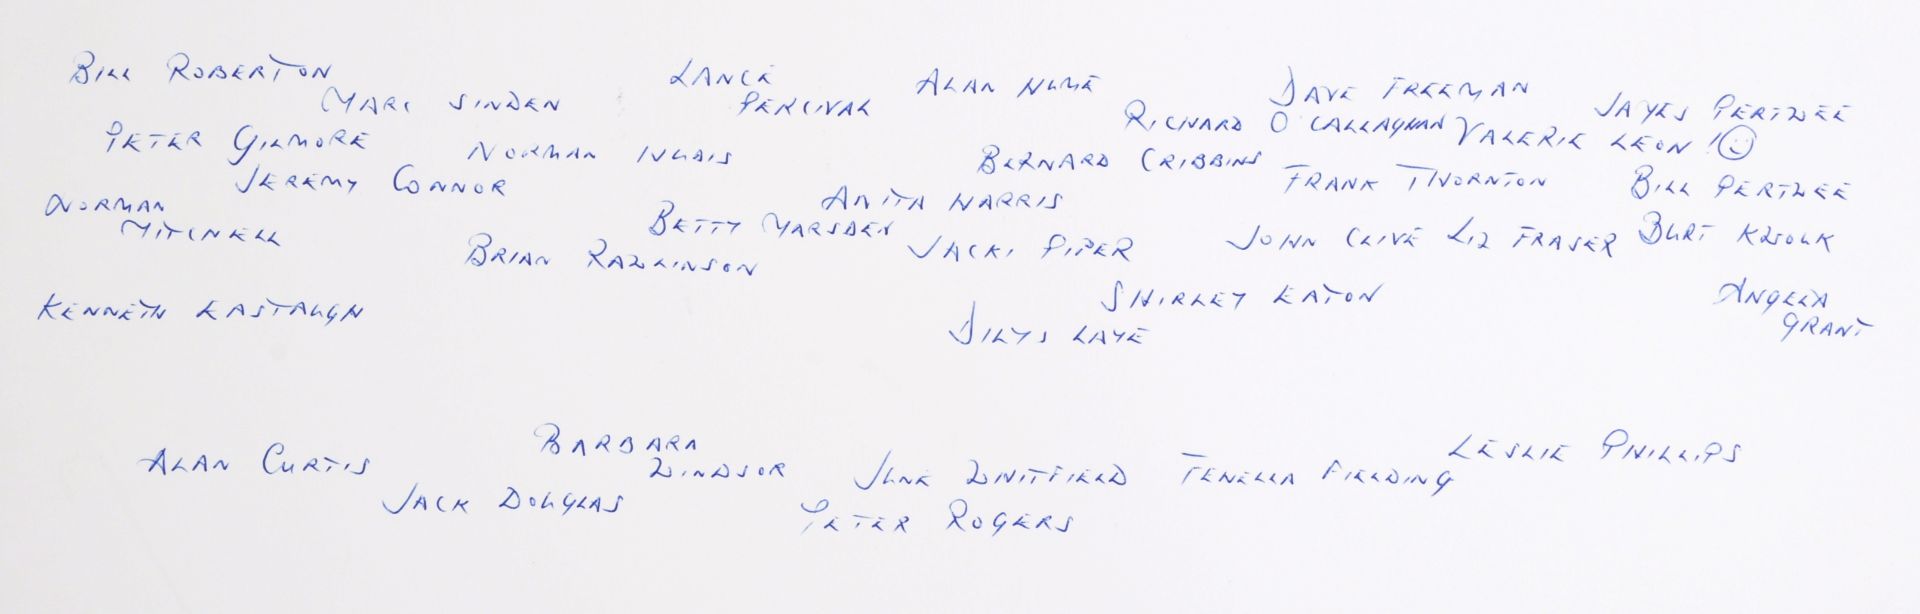 BILL ROBERTON
MARC SINDEN
LANCE
PERCIVAL
ALAN HUME
DAVE FREEMAN
JAYES PERTWEE
RICHARD O'CALLAGHAN
VALERIE LEON !
PETER GILMORE
NORMAN
BERNARD CRIBBINS
JEREMY CONNOR
FRANK THORNTON
BILL PERTWEE
NORMAN
MITCHELL
ANITA HARRIS
BETTY MARSDEN
BRIAN RAWLINSON
JACKI PIPER
JOHN CLIVE
LIZ FRASER
BURT KWOUK
KENNETH EASTAUGH
SHIRLEY EATON
DILYS LAYE
ANGELA
GRANT
ALAN CURTIS
BARBARA
WINDSOR
JACK DOUGLAS
JUNE WHITFIELD
FENELLA FIELDING
LESLIE PHILLIPS
PETER ROGERS